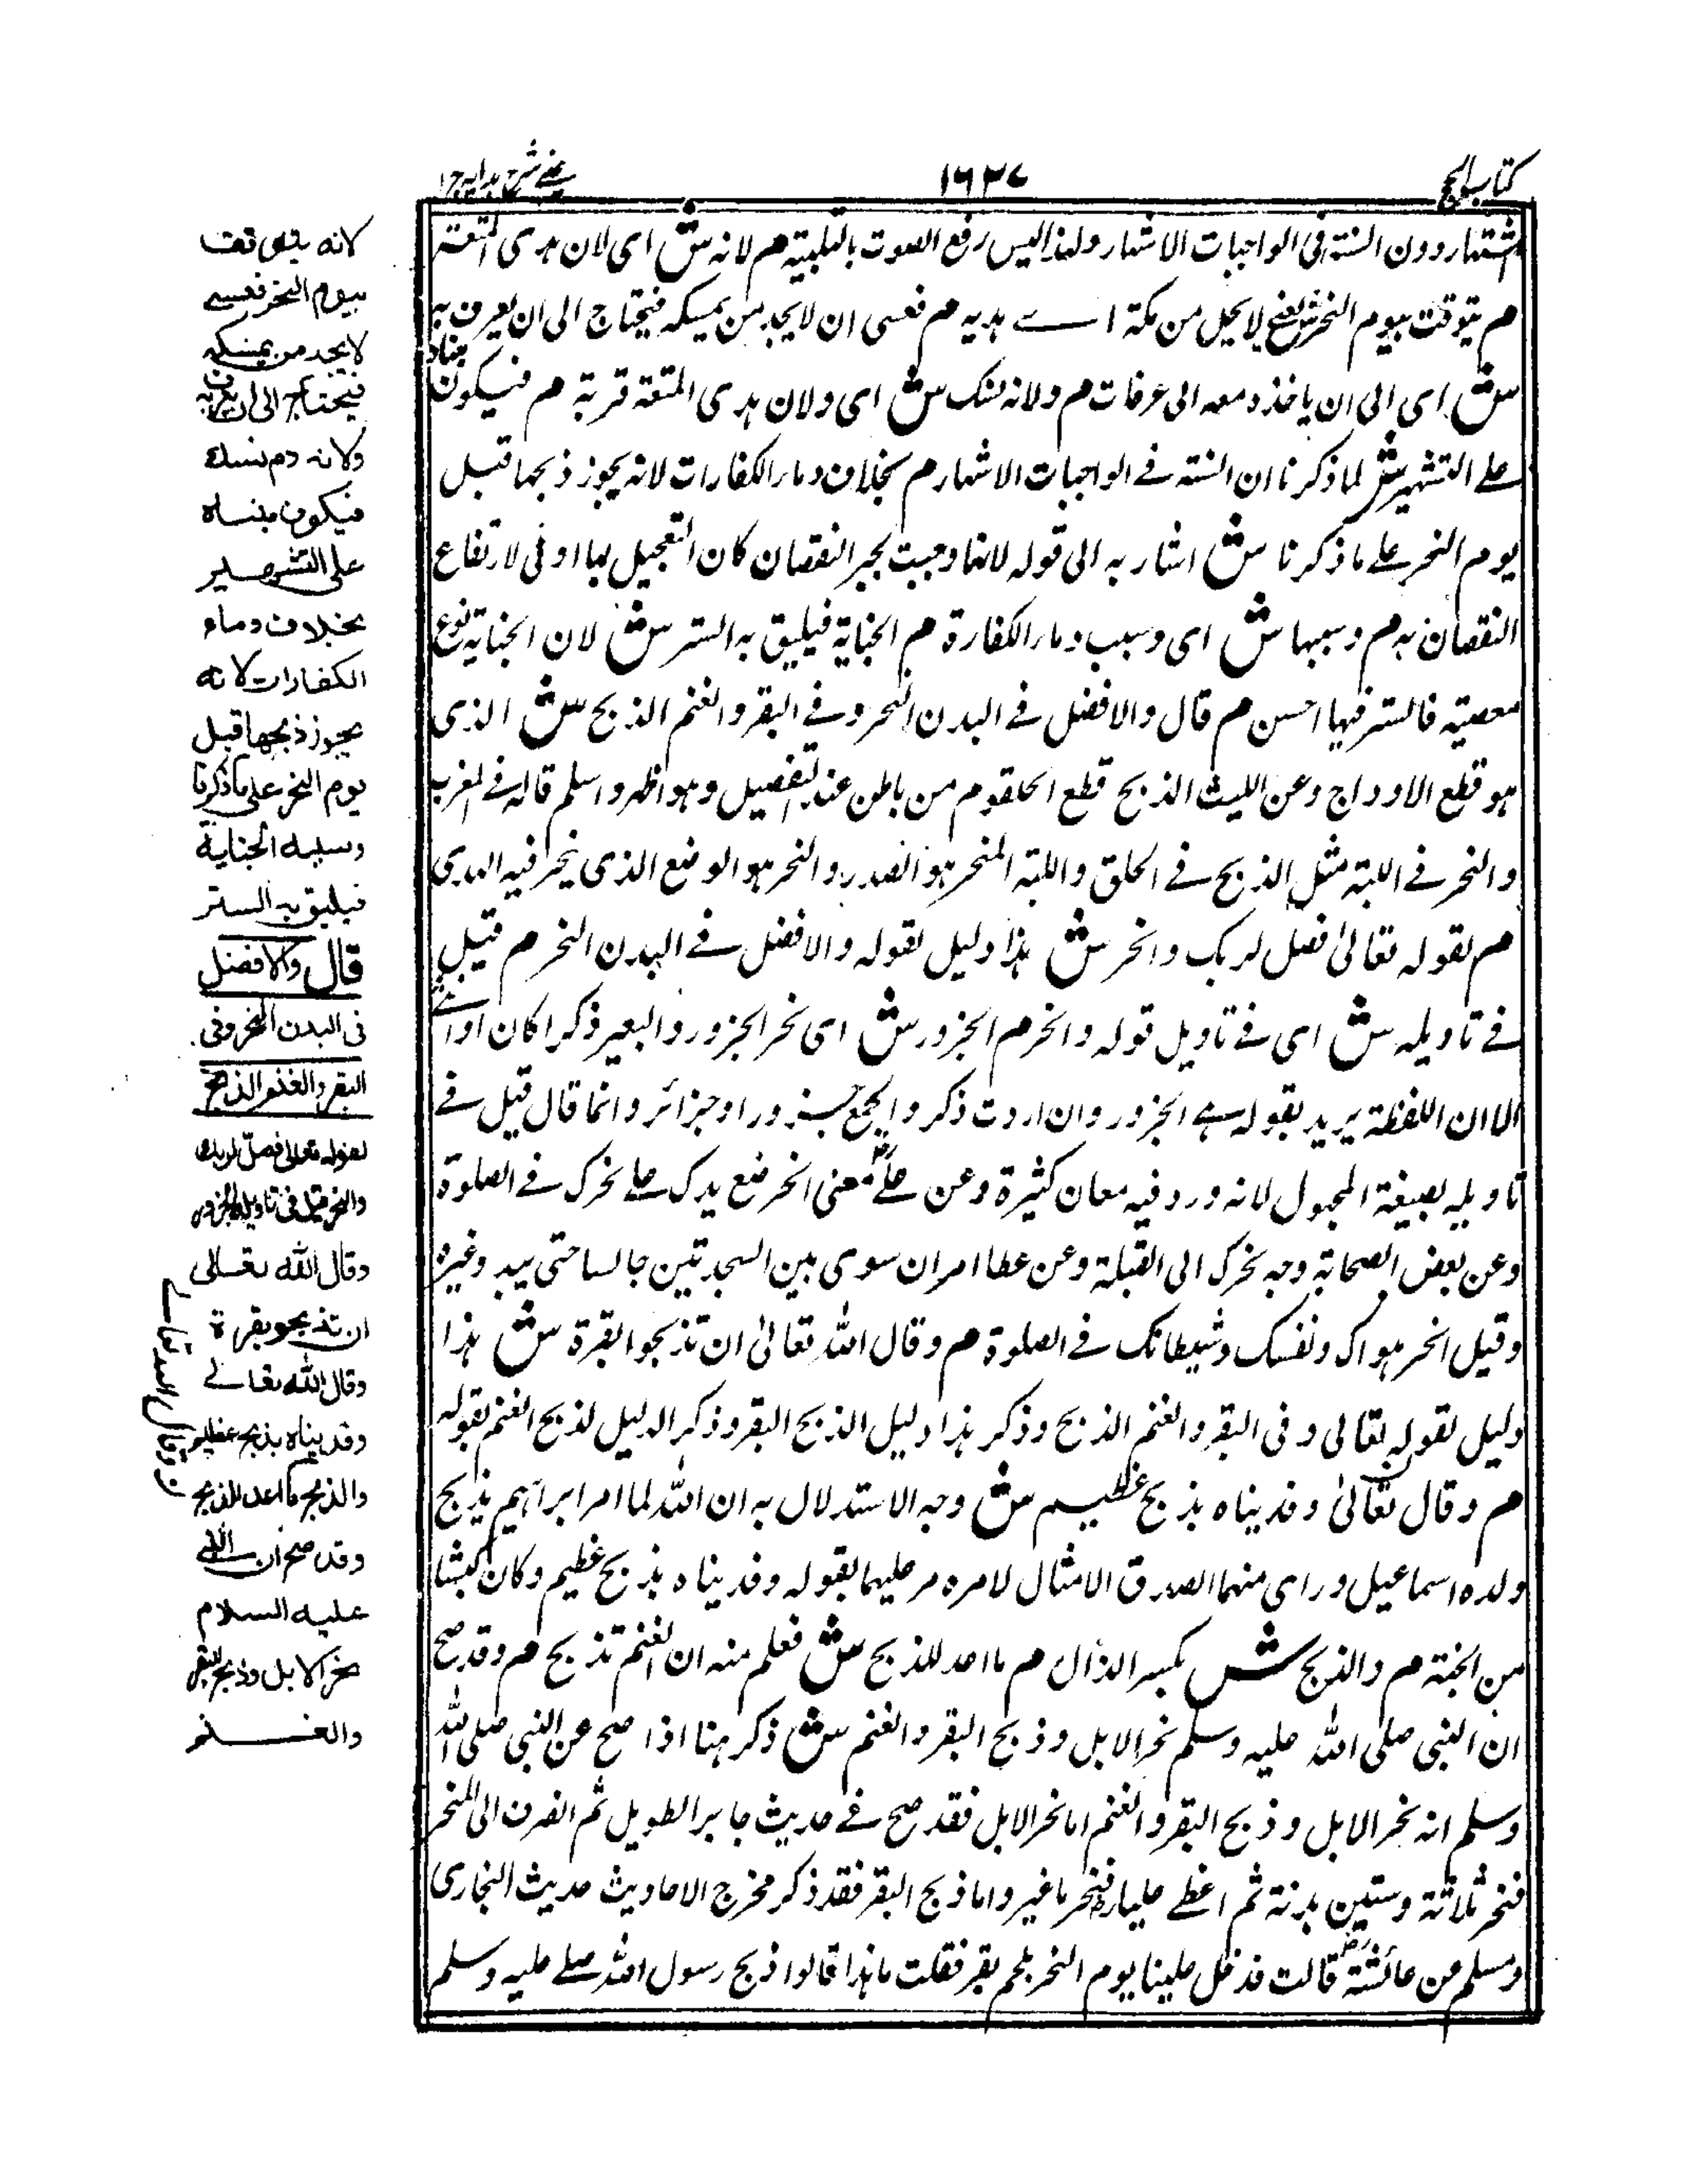 كتاب الحج
١٦٣٧
عيني شرح هدايه ج ١
اشتهار دون السنة فى الواجبات الاشهار ولهذا ليس رفع الصوت بالتلبية م لانه ش اى لان هدى المتعة
م يتوقت بيوم النحر ش يعنى لا يحل من مكة هديه م فعسى ان لا يجد من يمسكه فيحتاج الى ان يعرف به
ش اى الى ان ياخذه معه الى عرفات م ولانه نسك ش اى ولان هدى المتعة قربة م فيكون مبناه
على التشهير ش لما ذكرنا ان السنة فى الواجبات الاشهار م بخلاف دماء الكفارات لانه يجوز ذبحها قبل
يوم النحر على ما ذكرنا ش اشار به الى قوله لانها وجبت لجبر النقصان كان التعجيل بها اوفى لارتفاع
النقصان به م وسببها ش اى وسبب دماء الكفارة م الجناية فيليق به الستر ش لان الجناية نوع
معصية فالستر فيها احسن م قال والافضل فى البدن النحر وفى البقر والغنم الذبح ش الذى
هو قطع الاوداج وعن الليث الذبح قطع الحلقوم من باطن عند التفصيل وهو اظهر واسلم قاله فى المغرب
والنحر فى اللبة مثل الذبح فى الحلق واللبة المنحر هو الصدر والنحر هو الوضع الذى ينحر فيه الهدى
م لقوله تعالىٰ فصل لربك وانحر ش هذا دليل لقوله والافضل فى البدن النحر م قيل
فى تاويله ش اى فى تاويل قوله وانحر م الجزور ش اى نحر الجزور والبعير ذكرا كان او انثى
الا ان اللفظة يريد بقوله هى الجزور وان اردت ذكر والجمع جزور او جزائر وانما قال قيل فى
تاويله بصيغة المجهول لانه ورد فيه معان كثيرة وعن على رض معنى انحر ضع يدك على نحرك فى الصلوة
وعن بعض الصحابة وجه نحرك الى القبلة وعن عطا امر ان سوى بين السجدتين جالسا حتى يبد وغيره
وقيل انحر هواك ونفسك وشيطانك فى الصلوة م وقال الله تعالىٰ ان تذبحوا بقرة ش هذا
دليل لقوله تعالى وفى البقر والغنم الذبح وذكر هذا دليل الذبح البقر وذكر الدليل لذبح الغنم بقوله
م وقال تعالىٰ وفديناه بذبح عظيم ش وجه الاستدلال به ان الله لما امر ابراهيم بذبح
ولده اسماعيل وراى منهما الصدق الامتثال لامره مر عليهما بقوله وفديناه بذبح عظيم وكان كبشا
من الجنة م والذبح ش بكسر الذال م ما اعد للذبح ش فعلم منه ان الغنم تذبح م وقد صح
ان النبى صلى الله عليه وسلم نحر الابل وذبح البقر والغنم ش ذكر هنا اذا صح عن النبى صلى الله
وسلم انه نحر الابل وذبح البقر والغنم اما نحر الابل فقد صح فى حديث جابر الطويل ثم انصرف الى المنحر
فنحر ثلاثة وستين بدنة ثم اعطى عليا رض فنحر ما غبر واما ذبح البقر فقد ذكر مخرج الاحاديث حديث البخارى
ومسلم عن عائشة رض قالت فدخل علينا يوم النحر بلحم بقر فقلت ما هذا قالوا ذبح رسول الله صلى عليه وسلم
لانه يتوقت
بيوم النحر فعسى
لا يجد من يمسكه
فيحتاج الى ان يعرف به
ولانه دم نسك
فيكون مبناه
على التشهير
بخلاف دماء
الكفارات لانه
يجوز ذبحها قبل
يوم النحر على ما ذكرنا
وسببه الجناية
فيليق به الستر
قال والافضل
فى البدن النحر وفى
البقر والغنم الذبح
لقوله تعالى فصل لربك
وانحر قيل فى تاويله الجزور
وقال الله تعالى
ان تذبحوا بقرة
وقال الله تعالى
وفديناه بذبح عظيم
والذبح ما اعد للذبح
وقد صح ان النبى
عليه السلام
نحر الابل وذبح البقر
والغنم